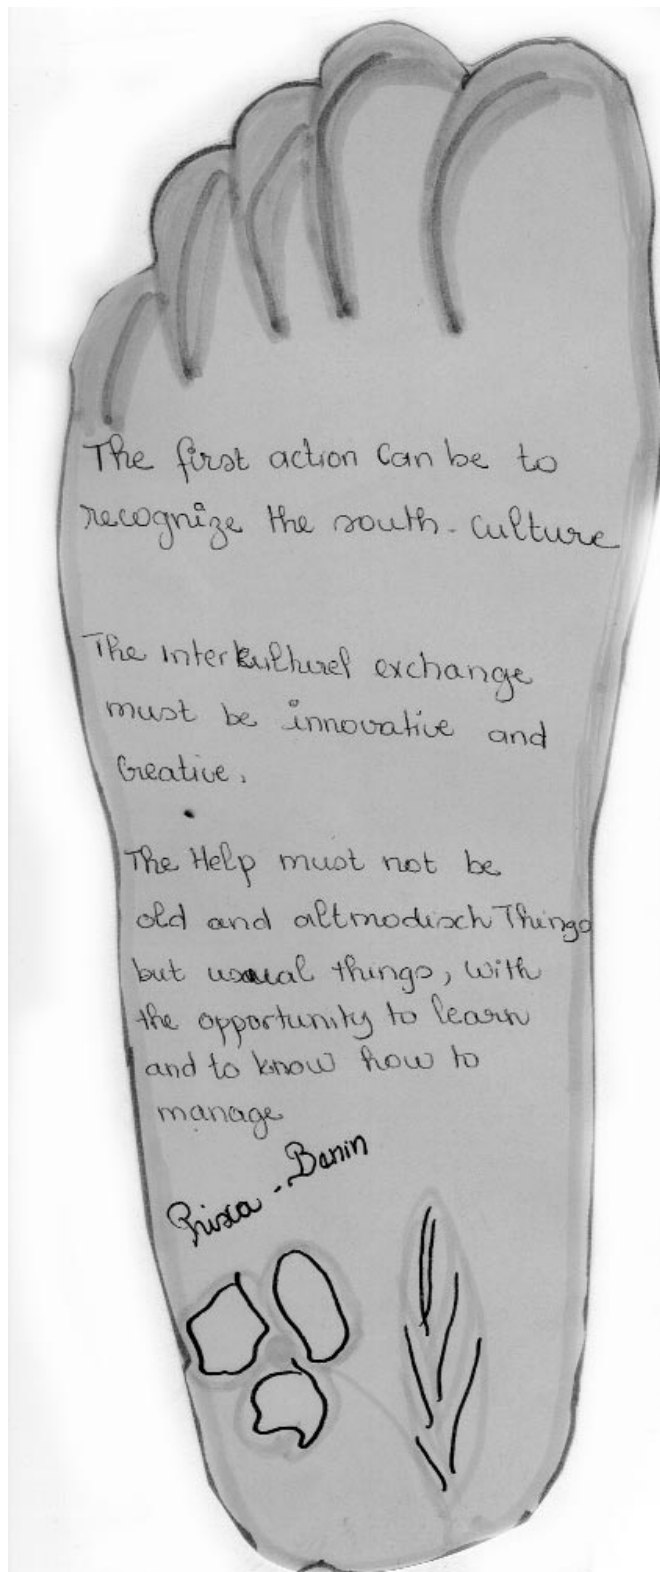 The first action can be to
recognize the south-culture
The interkulturel exchange
must be innovative and
creative.
The Help must not be
old and altmodisch Things
but usual things, with
the opportunity to learn
and to know how to
manage
Benin